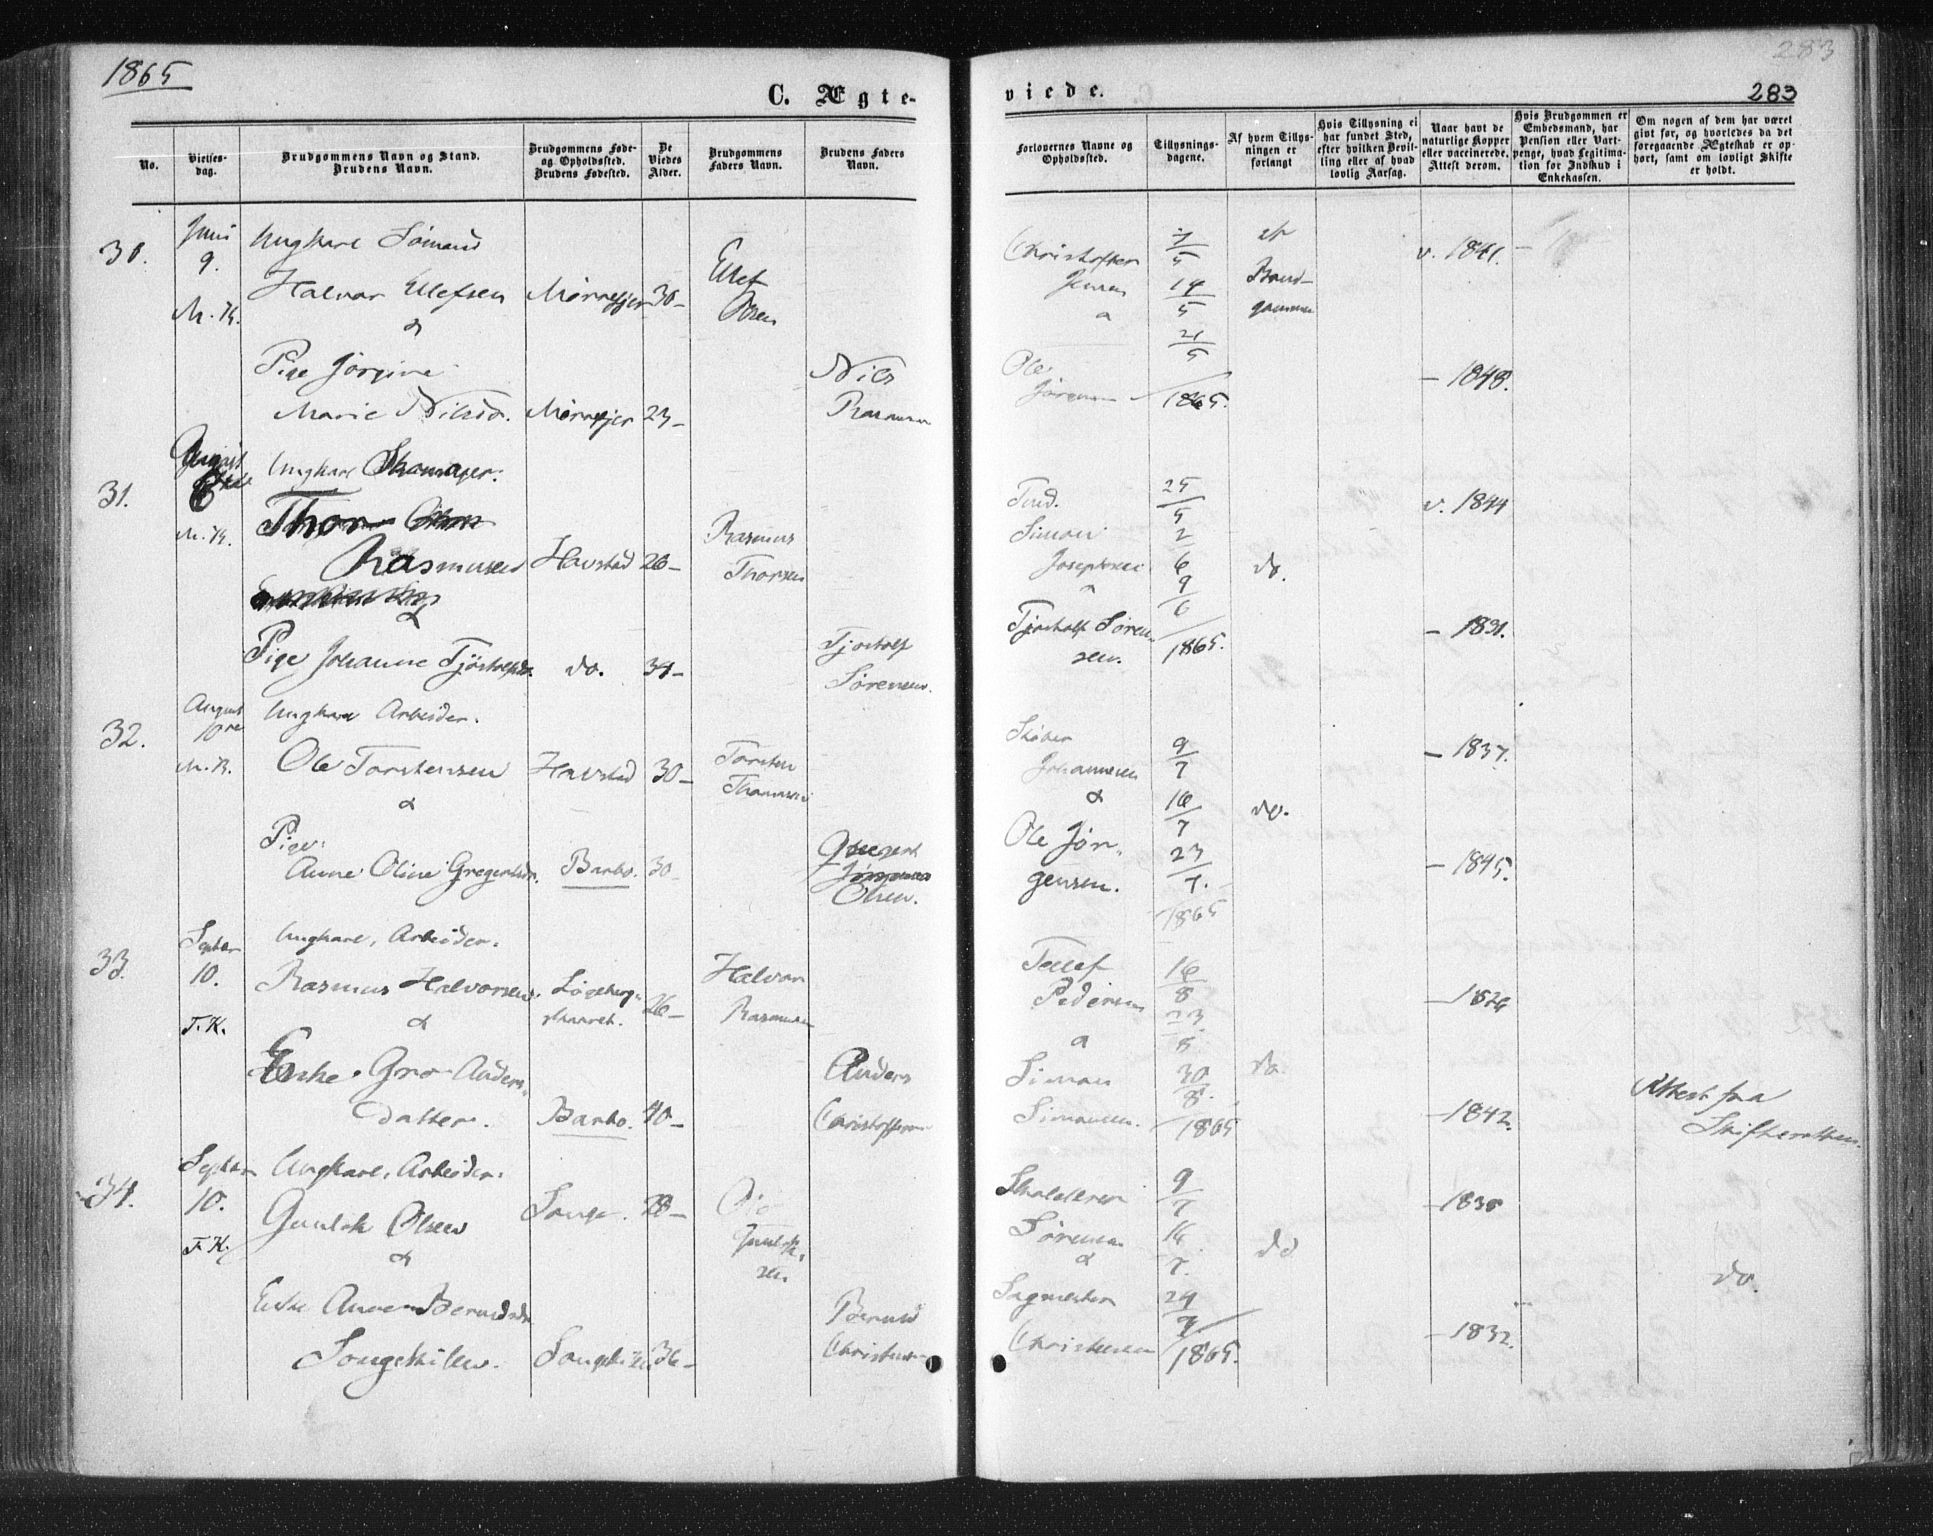 1865
283
C. Ægte-
viede.
283
No.
Vielses-
dag.
Brudgommens Navn og Stand.
Brudens Navn.
Brudgommens Føde-
og Opholdssted.
Brudens Fødested.
De
Viedes
Alder.
Brudgommens
Faders Navn.
Brudens Faders
Navn.
Forlovernes Navne og
Opholdssted.
Tillysnings-
dagene.
Af hvem Tillys-
ningen er
forlangt
Hvis Tillysning ei
har fundet Sted,
efter hvilken Bevil-
ling eller af hvad
lovlig Aarsag.
Naar havt de
naturlige Kopper
eller vaccinerede.
Attest derom.
Hvis Brudgommen er
Embedsmand, har
Pension eller Vart-
penge, hvad Legitima-
tion for Indskud i
Enkekassen.
Om nogen af dem har været
givt før, og hvorledes da det
foregaaende Ægteskab er op-
hørt, samt om lovligt Skifte
er holdt.
30.
Juni
9.
M. K.
Ungkarl Sømand
Halvor Ellefsen
&
Pige Jørgine
Marie Nilsd.
Mørrefjer
30-
Mørrefjer
23-
Ellef
Olsen
Nils
Rasmussen
Christoffer
Jensen
Ole
Jørgensen
7/5
14/5
21/5
1865.
af
Brud-
gommen
v. 1841.
- 1848.
31.
August
M. K.
Ungkarl Skomager.
Thor
Rasmussen
&
Pige Johanne Tjöstolfsd.
Havstad
26-
do.
34-
Rasmus
Thorsen
Tjostolf
Sørensen.
Simon
Josephsen
Tjostolf Søren-
sen.
25/5
2/6
9/6
1865.
do.
v. 1844
- 1831.
32.
August
10
M. K.
Ungkarl Arbeider.
Ole Torstensen
&
Pige
Anne Oline Gregertsdr.
Havstad
30-
Barbo.
30-
Torsten
Gregert
Olsen.
Johannesen
&
Ole Jør-
gensen.
9/7
16/7
23/7.
1865
do.
- 1837.
- 1845.
33.
Septbr
10.
T. K.
Ungkarl, Arbeider.
Rasmus Halvorsen.
&
Enke Gro Anders-
datter.
26-
Barbo.
40-
Halvor
Rasmussen
Anders
Christoffersen
Tellef
Pedersen
Simon
Simonsen.
16/8
23/8
30/8.
1865
do
- 1842.
Attest fra
Skifteretten.
34.
Septbr
10.
T. K.
Ungkarl, Arbeider.
Gunlek Olsen
&
Enke Anne Berntsdr
Songekilen.
Songe.
28-
Songekilen
36-
Ole
Gunlek-
sen
Bernt
Christensen
Sørensen
&
Sagmester
Christensen
9/7
16/7.
24/7
1865.
do
do.
- 1832.